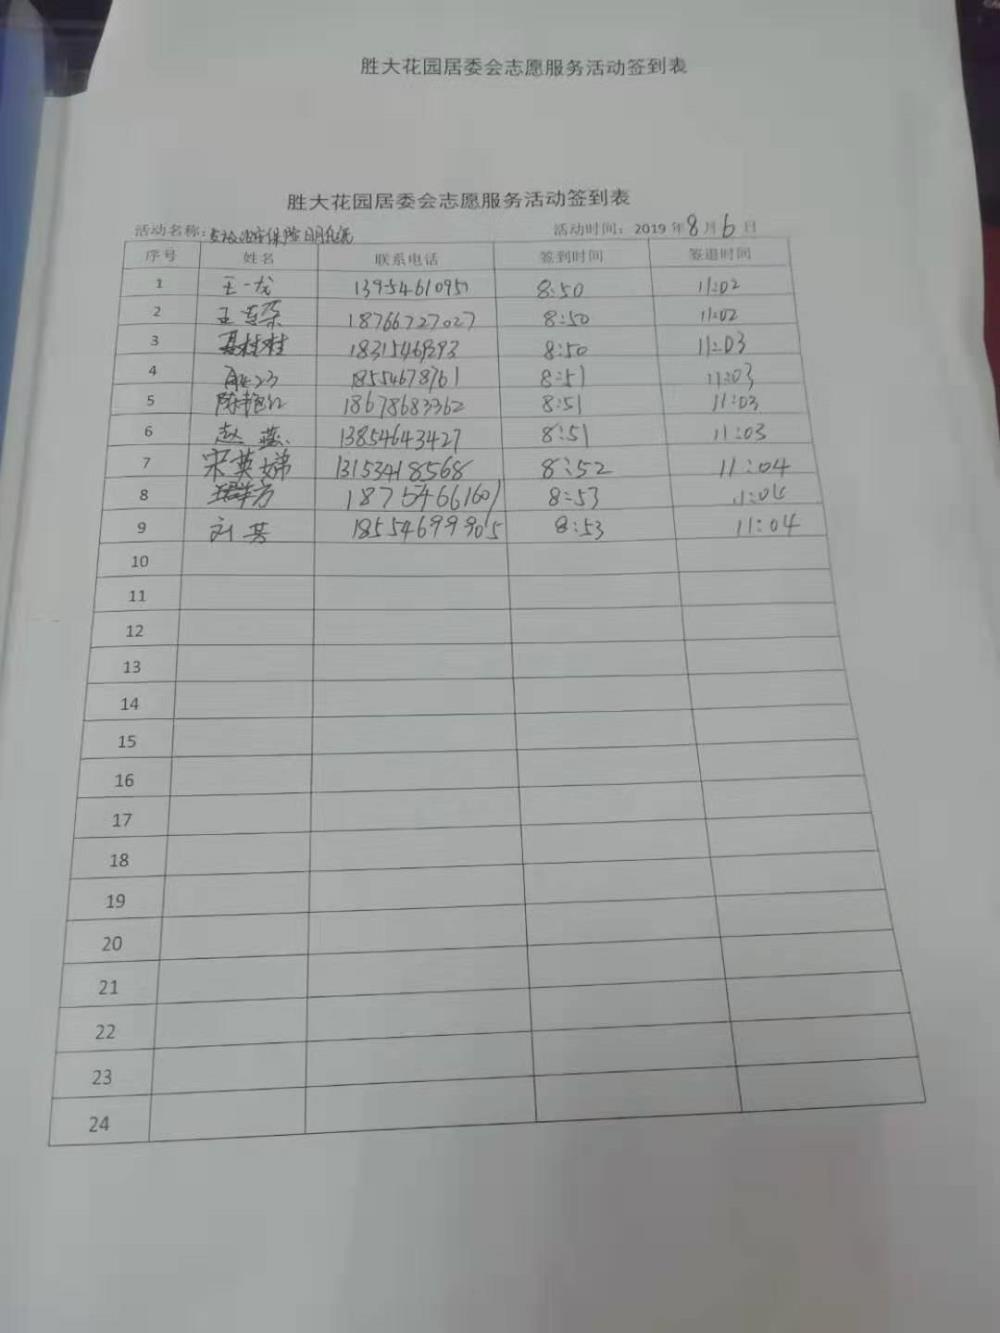 胜大花园居委会志愿服务活动签到表
胜大花园居委会志愿服务活动签到表
活动名称: 保险明白纸 活动时间: 2019 年 8 月 6 日
序号 姓名 联系电话 签到时间 签退时间
1 王一龙 13954610950 8:50 11:02
2 王 18766727027 8:50 11:02
3 8:50 11:03
4 18554678761 8:51 11:03
5 陈艳红 18678683362 8:51 11:03
6 赵燕 13854643427 8:51 11:03
7 宋英娣 13153418568 8:52 11:04
8 18754661601 8:53 11:04
9 刘芳 18554699905 8:53 11:04
10
11
12
13
14
15
16
17
18
19
20
21
22
23
24